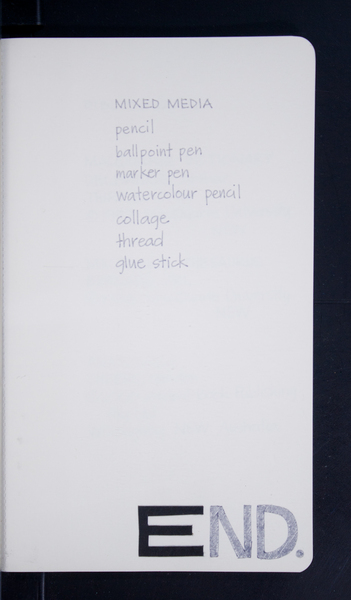 MIXED MEDIA
pencil
ballpoint pen
marker pen
watercolour pencil
collage
thread
glue stick
END.